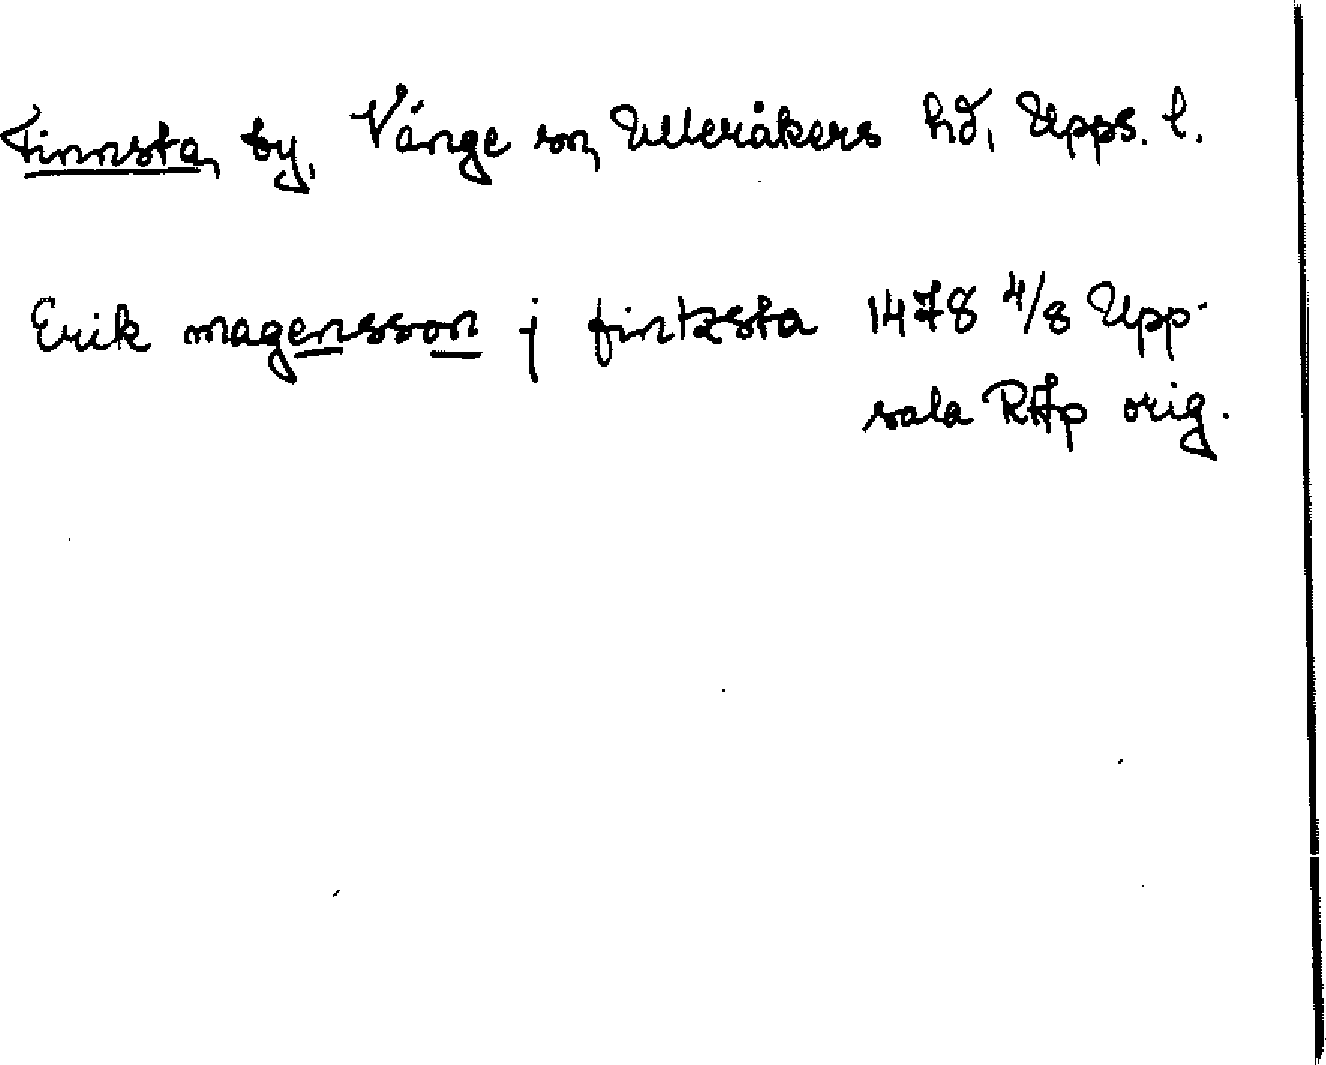 Finnsta, by, Vänge sn, Ulleråkers hd, Upps. l.
Erik magensson j fintzsta 1478 4/8 Upp-
sala RAp orig.